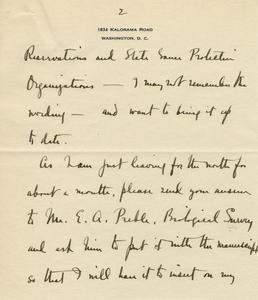 2
1834 KALORAMA ROAD
WASHINGTON, D. C.
Reservations and State Game Protection
Organizations — I may not remember the
wording — and want to bring it up
to date.
As I am just leaving for the north for
about a month, please send your answer
to Mr. E. A. Preble, Biological Survey
and ask him to put it with the manuscript
so that I will have it to insert on my